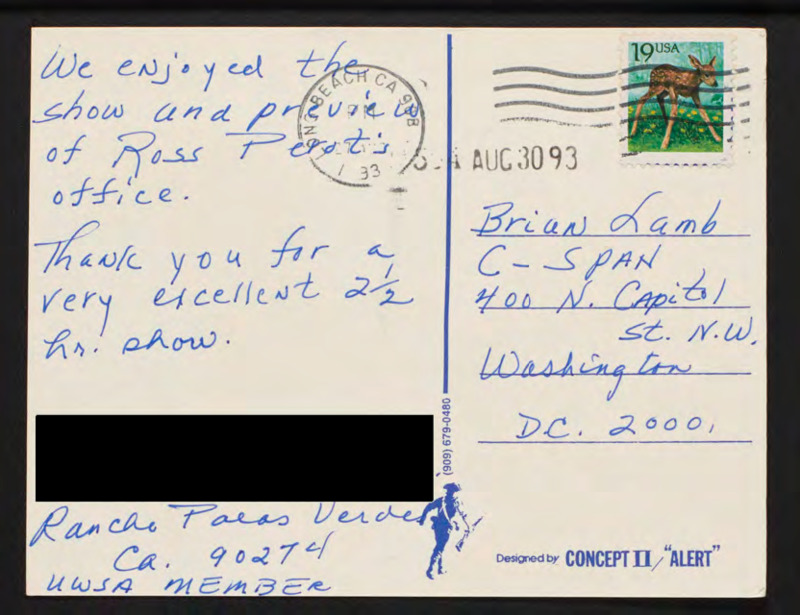 We enjoyed the
show and preview
of Ross Perot's
office.
Thank you for a
very excellent 2½
hr. show.
Rancho Palos Verdes
Ca. 90274
UWSA MEMBER
LONG BEACH CA
93
AUG 30 93
19 USA
Brian Lamb
C-SPAN
400 N. Capitol
St. N.W.
Washington
D.C. 20001
(909) 679-0480
Designed by CONCEPT II/"ALERT"